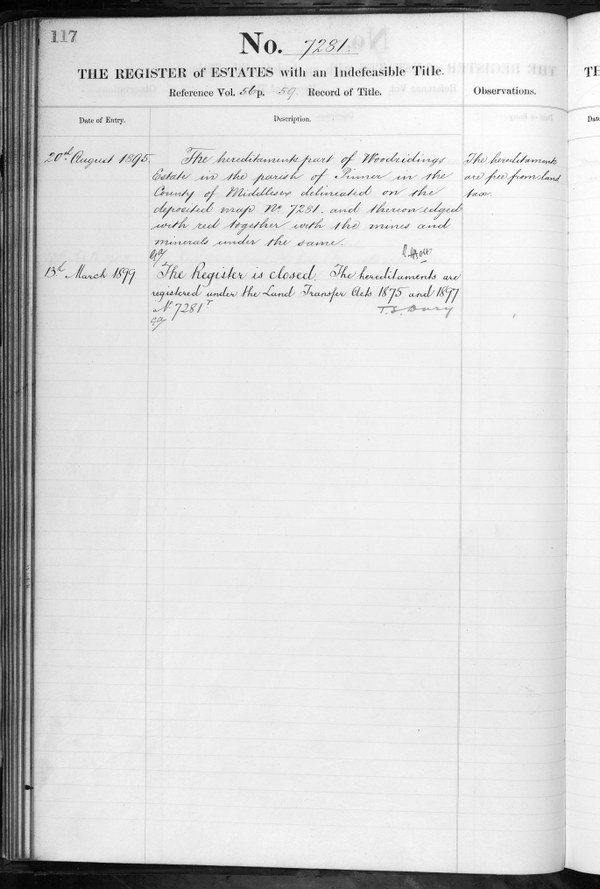 117
No. 7281.
THE REGISTER of ESTATES with an Indefeasible Title.
Reference Vol. 56 p. 59 Record of Title.
Observations.
Date of Entry.
Description.
20th August 1895.
The hereditaments part of Woodridings
Estate in the parish of Pinner in the
County of Middlesex delineated on the
deposited map No 7281. and thereon edged
with red together with the mines and
minerals under the same.
The hereditaments
are free from land
tax.
13th March 1899
The Register is closed. The hereditaments are
registered under the Land Transfer Acts 1875 and 1897
No 7281T
TH
Dat